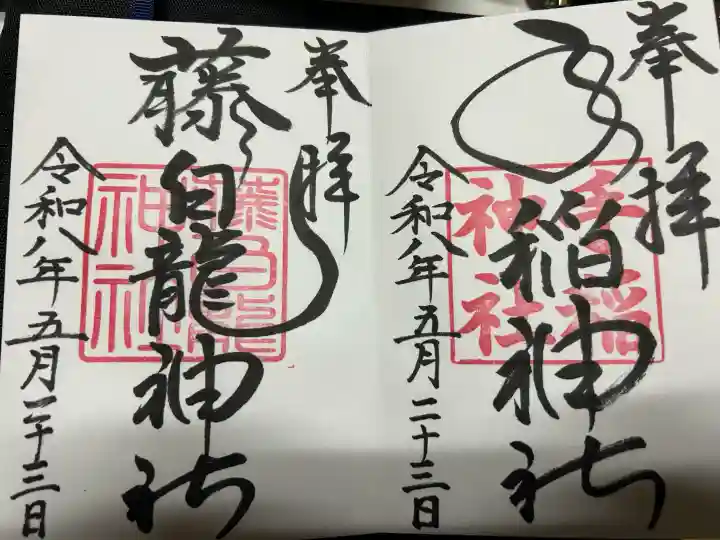 奉拝
手稲神社
手稲神社
令和八年五月二十三日
奉拝
藤白龍神社
藤白龍神社
令和八年五月二十三日